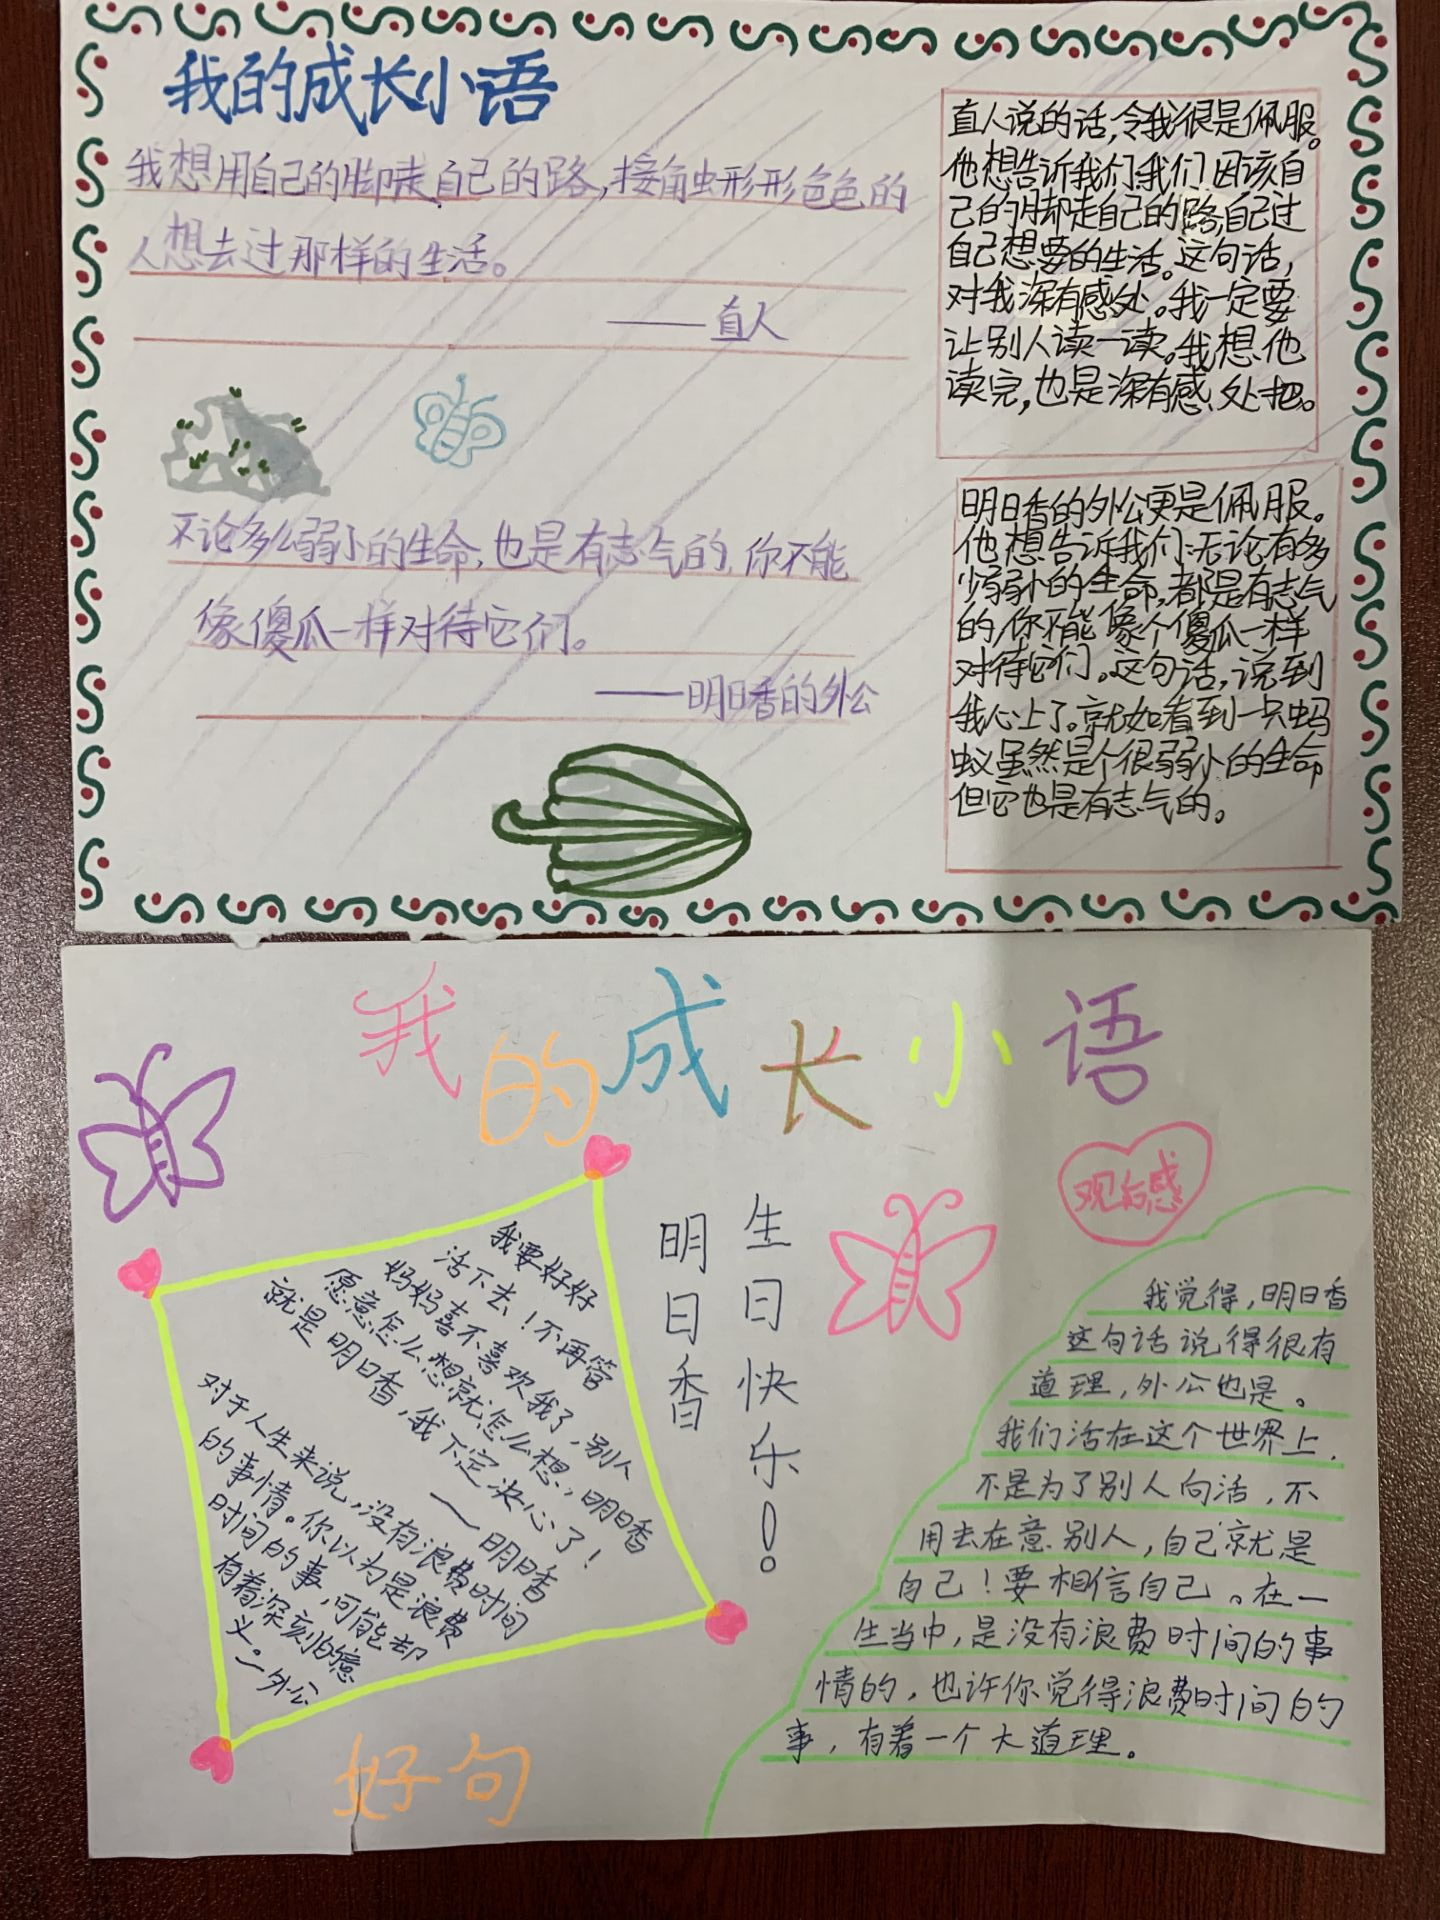 我的成长小语
我想用自己的脚走自己的路,接触形形色色的
人想去过那样的生活。
——直人
不论多么弱小的生命,也是有志气的,你不能
像傻瓜一样对待它们。
——明日香的外公
直人说的话,令我很是佩服。
他想告诉我们,我们因该自
己的脚走自己的路,自己过
自己想要的生活。这句话,
对我深有感处。我一定要
让别人读一读。我想他
读完,也是深有感处把。
明日香的外公更是佩服。
他想告诉我们:无论有多
少弱小的生命,都是有志气
的,你不能像个傻瓜一样
对待它们。这句话,说到
我心上了。就如看到一只蚂
蚁虽然是个很弱小的生命
但它也是有志气的。
我的成长小语
我要好好
活下去!不再管
妈妈喜不喜欢我了,别人
愿意怎么想就怎么想,明日香
就是明日香,我下定决心了!
——明日香
对于人生来说,没有浪费时间
的事情。你以为是浪费
时间的事,可能却
有着深刻的意
义。—外公
好句
生日快乐!
明日香
观后感
我觉得,明日香
这句话说得很有
道理,外公也是。
我们活在这个世界上,
不是为了别人向活,不
用去在意别人,自己就是
自己!要相信自己。在一
生当中,是没有浪费时间的事
情的,也许你觉得浪费时间的
事,有着一个大道理。